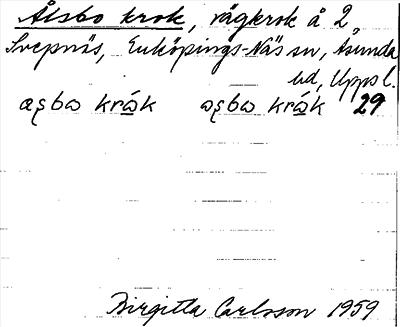 Ålsbo krok, vägkrok å 2
Svepnäs, Enköpings-Näs sn, Åsunda
hd, Uppsl.
krok krok 29
Birgitta Carlsson 1959